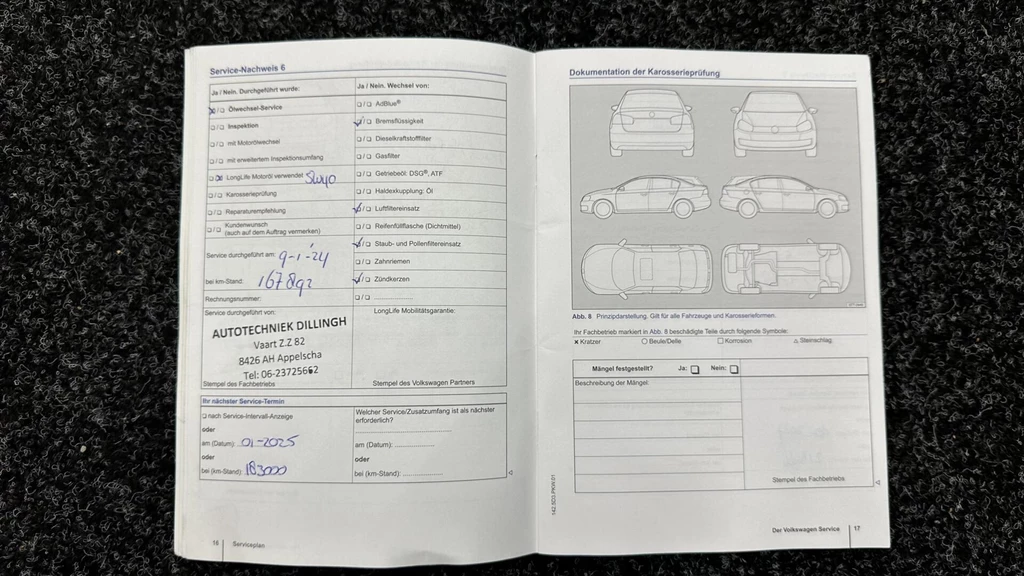 Service-Nachweis 6
Ja / Nein. Durchgeführt wurde:
☒/☐ Ölwechsel-Service
☐/☐ Inspektion
☐/☐ mit Motorölwechsel
☐/☐ mit erweitertem Inspektionsumfang
☐/☒ LongLife Motoröl verwendet 5W40
☐/☐ Karosserieprüfung
☐/☐ Reparaturempfehlung
☐/☐ Kundenwunsch
(auch auf dem Auftrag vermerken)
Service durchgeführt am: 9-1-'24
bei km-Stand: 167892
Rechnungsnummer:
Service durchgeführt von:
AUTOTECHNIEK DILLINGH
Vaart Z.Z 82
8426 AH Appelscha
Tel: 06-23725662
Stempel des Fachbetriebs
Ja / Nein. Wechsel von:
☐/☐ AdBlue®
☑/☐ Bremsflüssigkeit
☐/☐ Dieselkraftstofffilter
☐/☐ Gasfilter
☐/☐ Getriebeöl: DSG®, ATF
☐/☐ Haldexkupplung: Öl
☑/☐ Luftfiltereinsatz
☐/☐ Reifenfüllflasche (Dichtmittel)
☑/☐ Staub- und Pollenfiltereinsatz
☐/☐ Zahnriemen
☑/☐ Zündkerzen
☐/☐ ....................
LongLife Mobilitätsgarantie:
Stempel des Volkswagen Partners
Ihr nächster Service-Termin
☐ nach Service-Intervall-Anzeige
oder
am (Datum): 01-2025
oder
bei (km-Stand): 183000
Welcher Service/Zusatzumfang ist als nächster
erforderlich?
am (Datum): ....................
oder
bei (km-Stand): ....................
16 Serviceplan
Dokumentation der Karosserieprüfung
Abb. 8 Prinzipdarstellung. Gilt für alle Fahrzeuge und Karosserieformen.
Ihr Fachbetrieb markiert in Abb. 8 beschädigte Teile durch folgende Symbole:
✕ Kratzer ○ Beule/Delle ☐ Korrosion △ Steinschlag
Mängel festgestellt? Ja: ☐ Nein: ☐
Beschreibung der Mängel:
Stempel des Fachbetriebs
142.5D3.PKW.01
Der Volkswagen Service 17